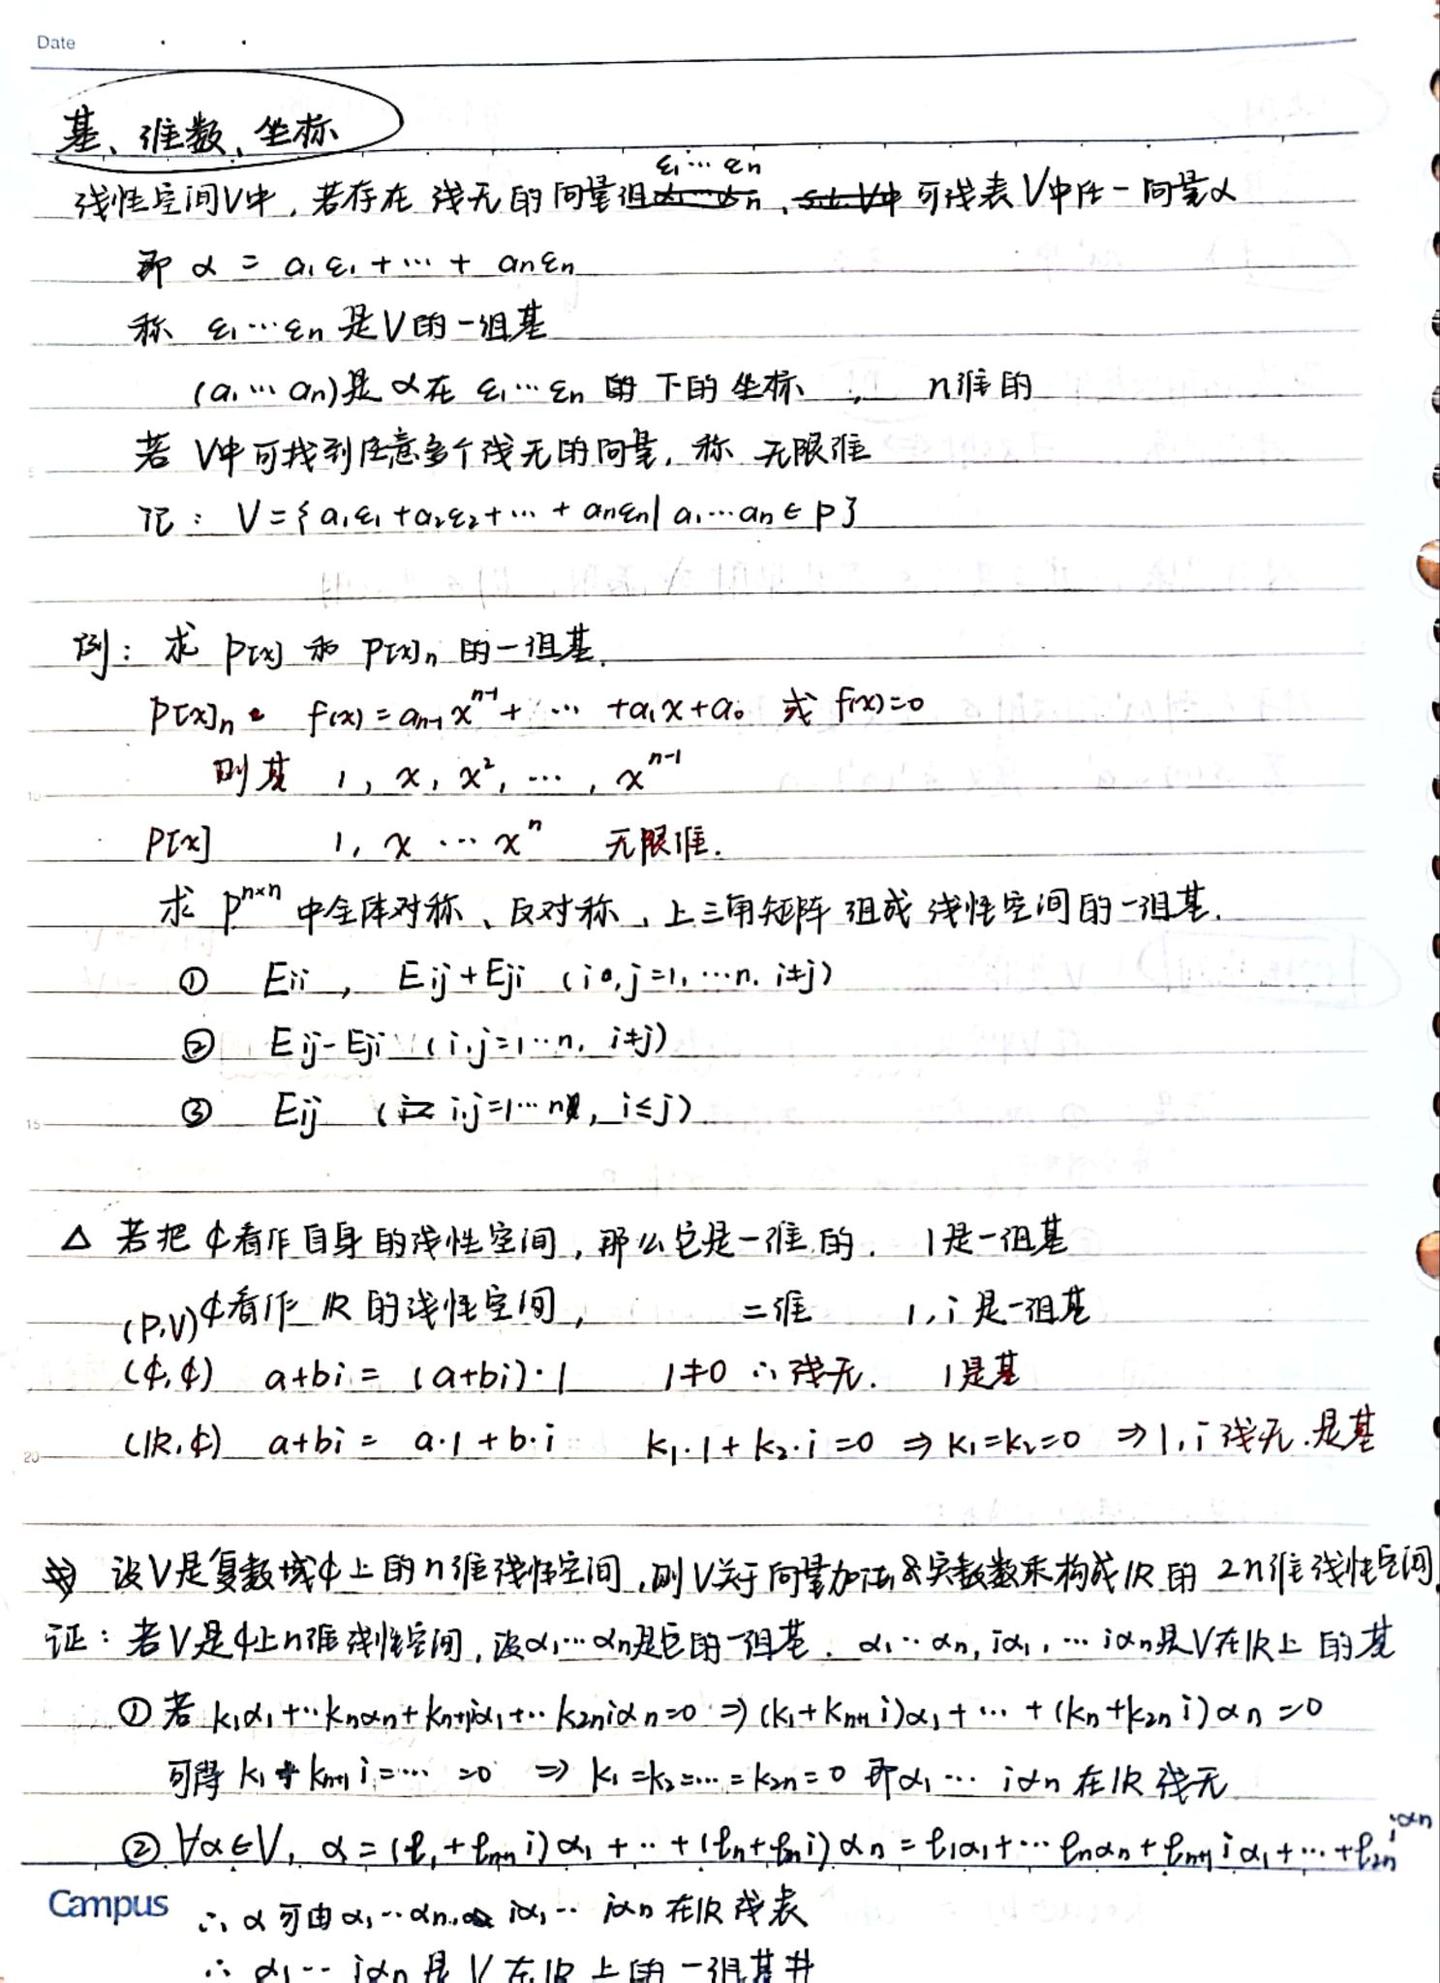 Date
基、维数、坐标
ε₁…εn
线性空间V中,若存在线无的向量组 可线表V中任一向量α
即 α = a₁ε₁+…+ anεn
称 ε₁…εn 是V的一组基
(a₁…an)是α在 ε₁…εn 的下的坐标 , n维的
若 V中可找到任意多个线无的向量,称 无限维
记: V={a₁ε₁+a₂ε₂+…+anεn| a₁…an∈P}
例: 求 P[x] 和 P[x]n 的一组基.
P[x]n f(x)=an-1 xⁿ⁻¹+ … +a₁x+a₀ 或 f(x)=0
则基 1, x, x², …, xⁿ⁻¹
10
P[x] 1, x … xⁿ 无限维.
求 Pⁿˣⁿ 中全体对称、反对称、上三角矩阵 组成 线性空间的一组基.
① Eii , Eij+Eji (i,j=1,…n. i≠j)
② Eij-Eji (i,j=1…n, i≠j)
③ Eij (i,j=1…n, i≤j)
15
△ 若把 ₵看作自身的线性空间,那么它是一维的. 1是一组基
(P,V) ₵看作 ℝ 的线性空间, 二维 1,i 是一组基
(₵,₵) a+bi=(a+bi)·1 1≠0 ∴线无. 1是基
(ℝ,₵) a+bi= a·1+b·i k₁·1+k₂·i=0 ⇒k₁=k₂=0 ⇒1,i 线无.是基
20
设V是复数域₵上的n维线性空间,则V关于向量加法&实数数乘构成ℝ的 2n维线性空间
证: 若V是₵上n维线性空间,设α₁…αn是它的一组基. α₁…αn, iα₁,…iαn是V在ℝ上的基
① 若 k₁α₁+…knαn+kn+1iα₁+…k2niαn=0 ⇒(k₁+kn+1 i)α₁+…+(kn+k2n i)αn=0
可得 k₁+kn+1 i=…=0 ⇒ k₁=k₂=…=k2n=0 即α₁… iαn 在ℝ线无
② ∀α∈V, α=(l₁+ln+1 i)α₁+…+(ln+l2n i)αn=l₁α₁+…lnαn+ln+1 iα₁+…+l2n iαn
Campus
∴ α可由α₁…αn, iα₁… iαn 在ℝ线表
∴ α₁… iαn 是 V 在ℝ上的一组基 #